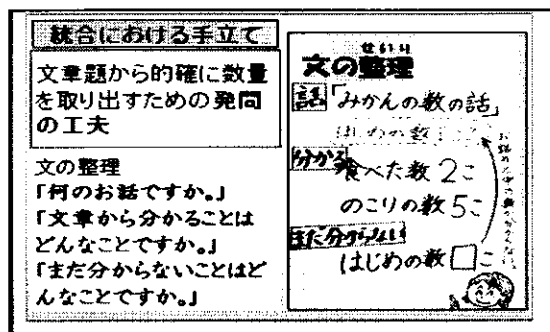 統合における手立て
文章題から的確に数量
を取り出すための発問
の工夫
文の整理
「何のお話ですか。」
「文章から分かることは
どんなことですか。」
「まだ分からないことはど
んなことですか。」
せいり
文の整理
話「みかんの数の話」
はじめの数
分かる
食べた数 2こ
のこりの数 5こ
まだ分からない
はじめの数□こ